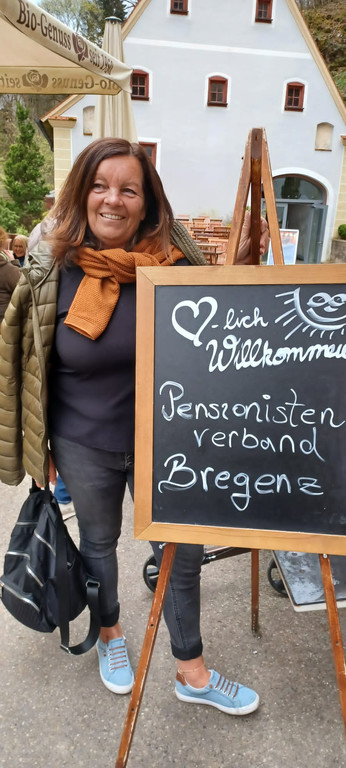 Bio-Genuss seit 1896
♡-lich
Willkommen
Pensionisten
verband
Bregenz